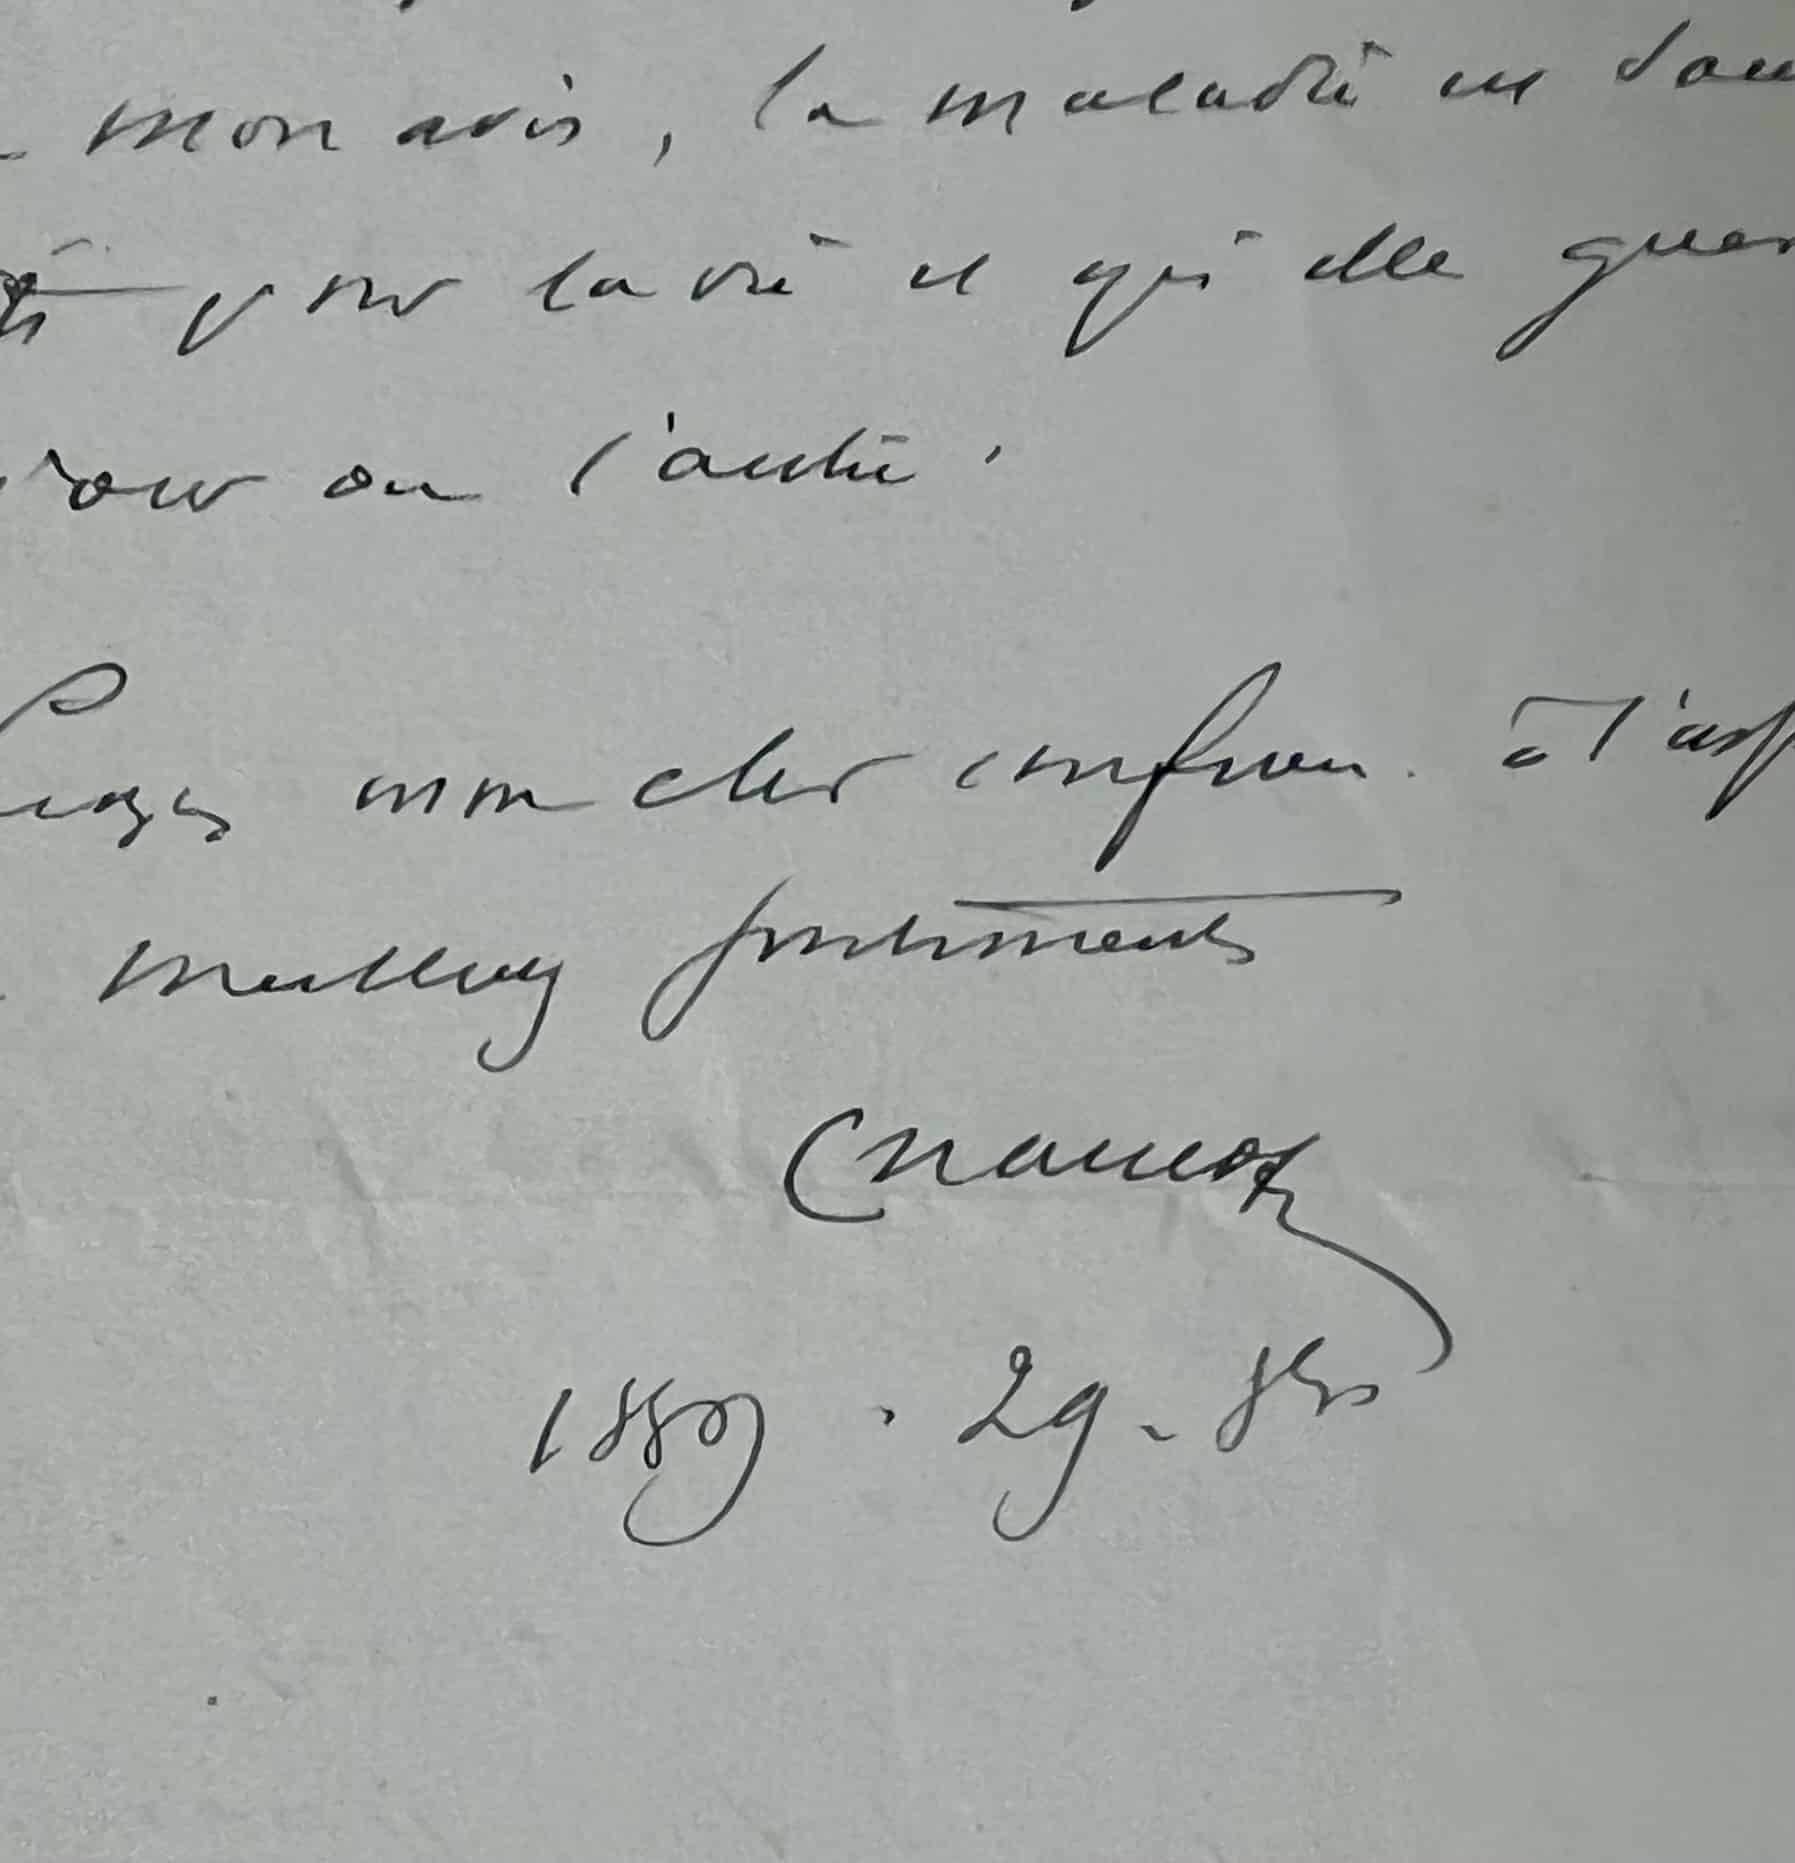 mon avis, la maladie est sans
pour la vie et qu'elle guer
jour ou l'autre.
mon cher confrère. à l'ass
meilleurs sentiments
Charcot
1889. 29. 8bre